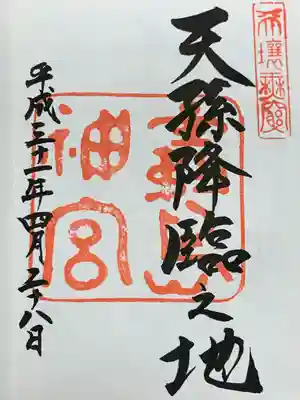 天壤無窮
天孫降臨之地
神宮
平成三十一年四月二十八日